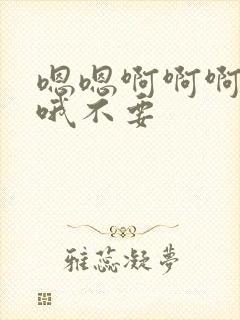 嗯嗯啊啊啊
哦不要
雅蕊凝梦